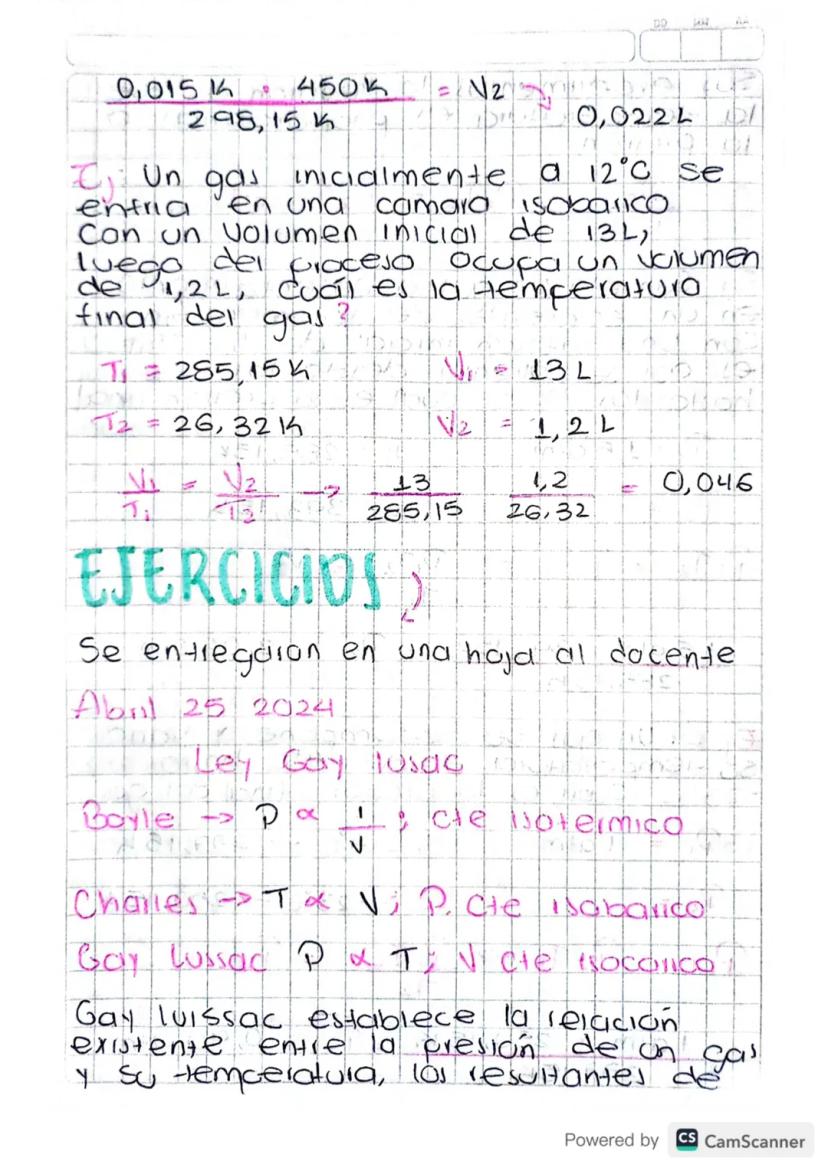 DD MM AA
0,015 K · 450 K = V2
298,15 K 0,022 L
I) Un gas inicialmente a 12°C se
enfria en una camara isobarico
con un volumen inicial de 13L,
luego del proceso ocupa un volumen
de 1,2 L, cuál es la temperatura
final del gas?
T1 = 285,15 K V1 = 13 L
T2 = 26,32 K V2 = 1,2 L
V1/T1 = V2/T2 → 13/285,15 1,2/26,32 = 0,046
EJERCICIOS
Se entregaron en una hoja al docente
Abril 25 2024
Ley Gay lusac
Boyle → P ∝ 1/V ; cte isotermico
Charles → T ∝ V; P. cte isobarico
Gay Lussac P ∝ T; V cte isocorico
Gay luissac establece la relación
existente entre la presión de un gas
y su temperatura, los resultantes de
Powered by CS CamScanner